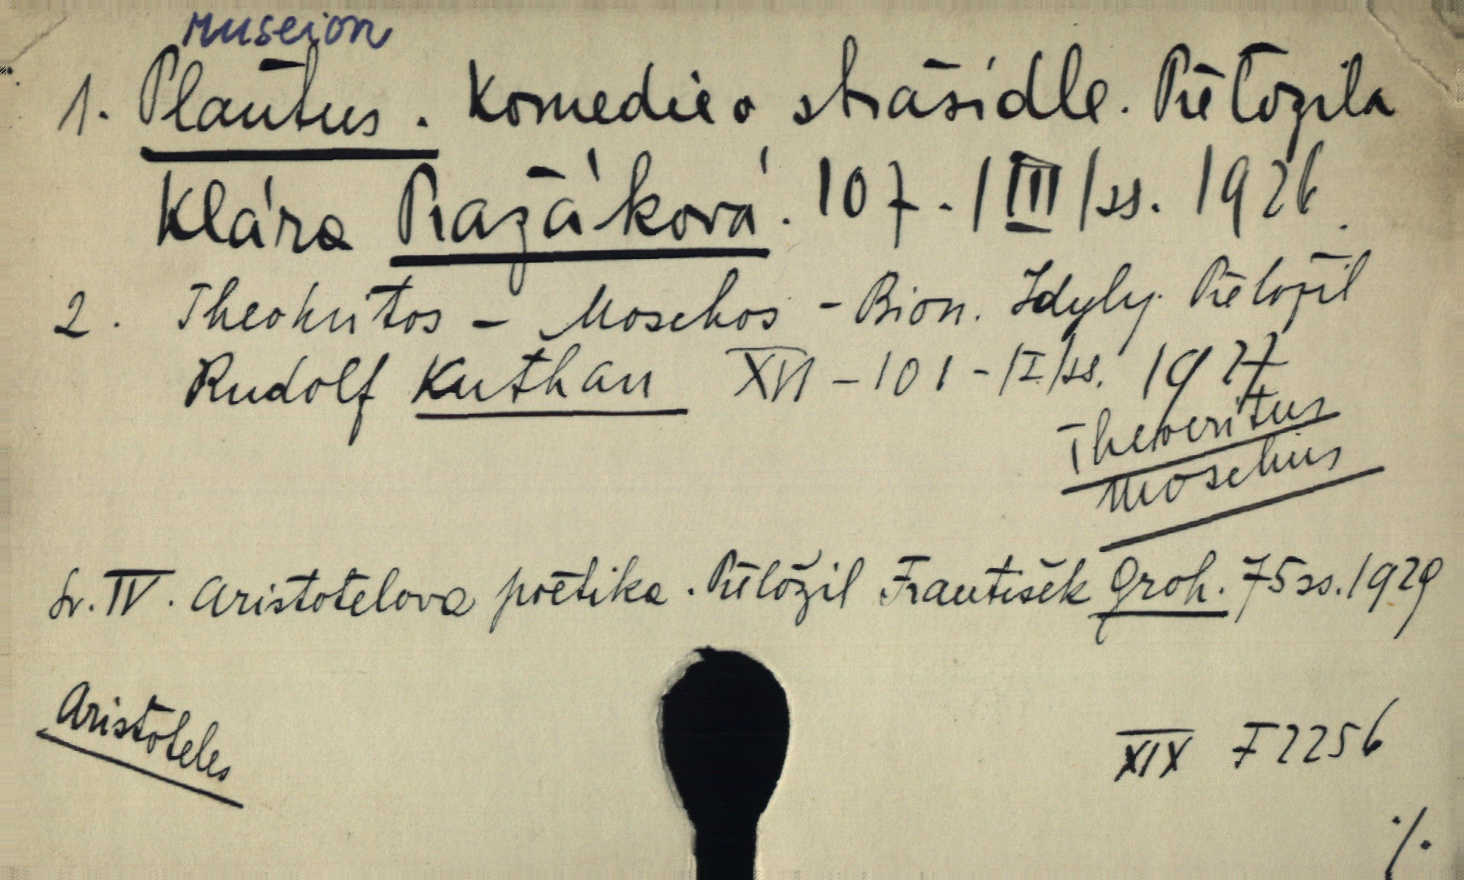 Museion
1. Plautus. Komedie o strašidle. Přeložila
Klára Pražáková. 107-/III/ss. 1926.
2. Theokritos - Moschos - Bion. Idyly. Přeložil
Rudolf Kuthan XVI-101-/I/ss. 1927
Theocritus
Moschus
Sv. IV. Aristotelova poetika. Přeložil František Groh. 75 ss. 1929
Aristoteles
XIX F 2256
./.